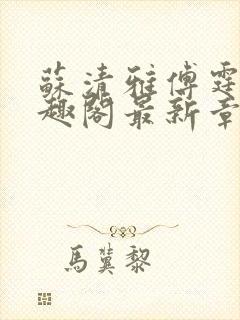 蘇清雅傅霆
趣閣最新章
馬冀黎